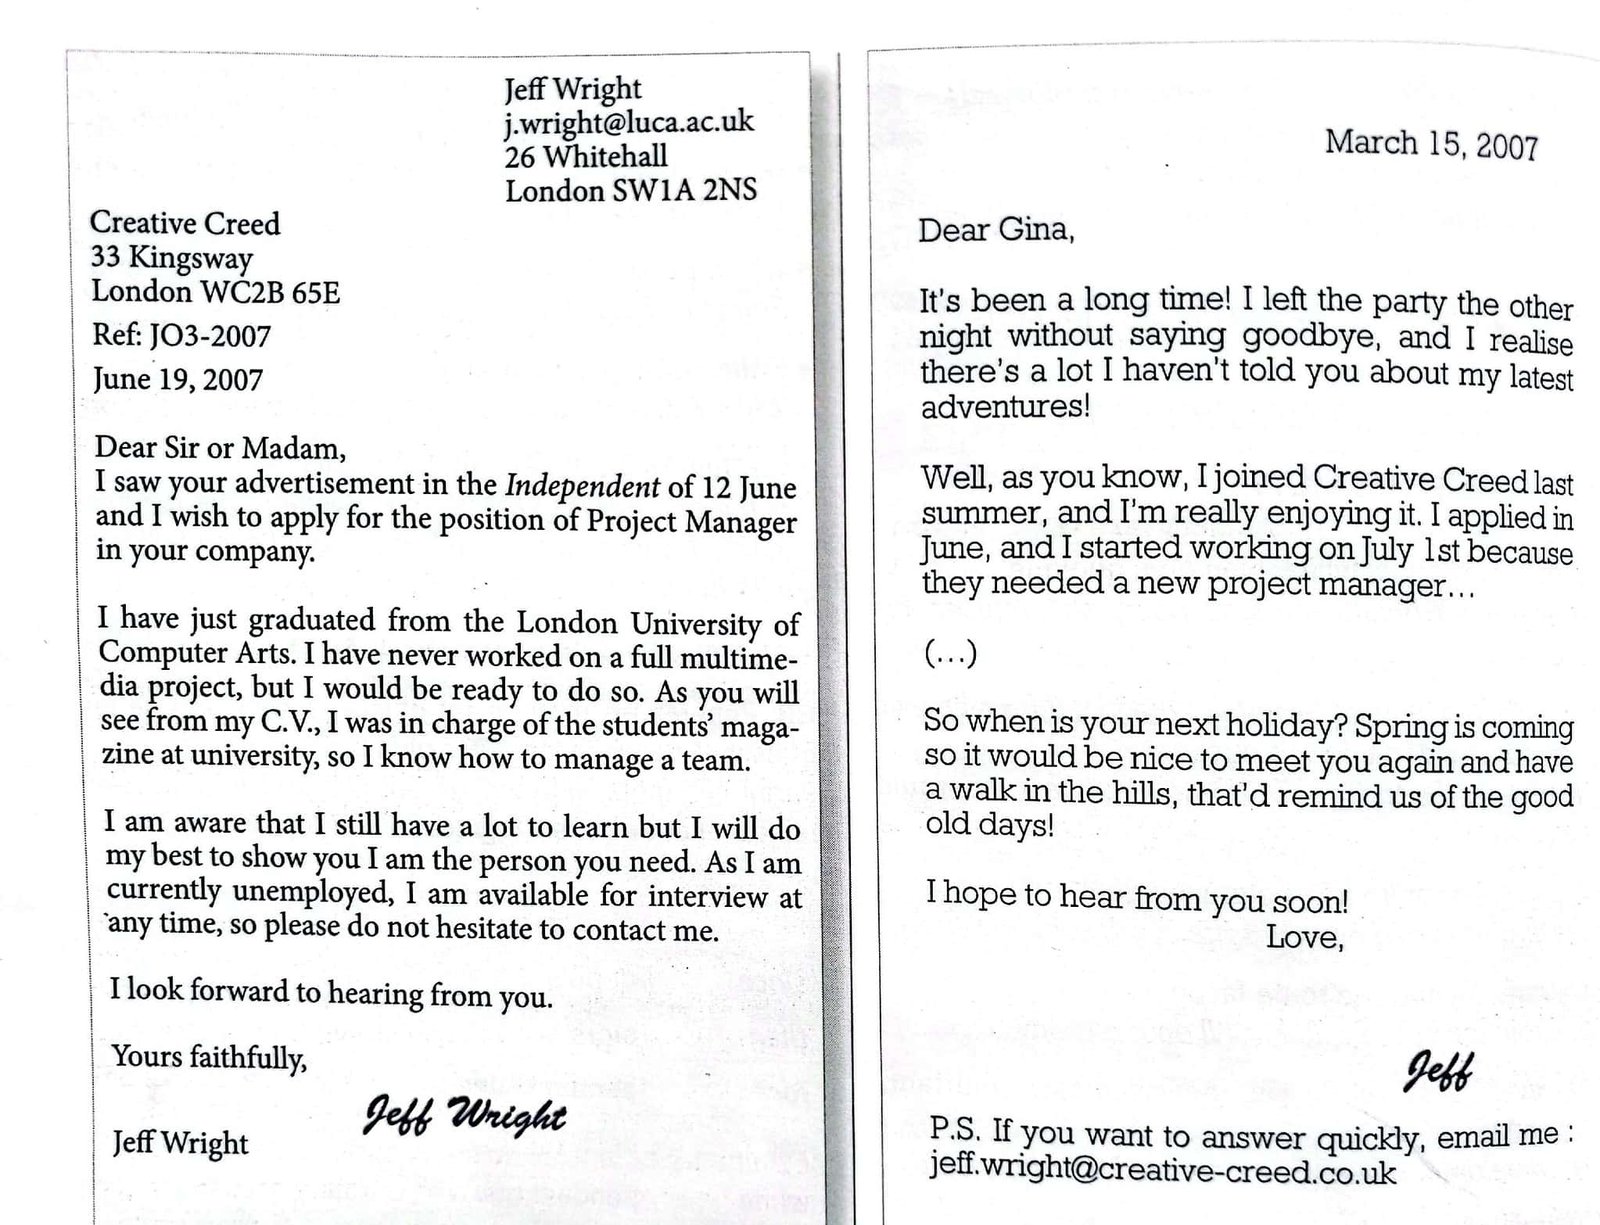 Jeff Wright
j.wright@luca.ac.uk
26 Whitehall
London SW1A 2NS
Creative Creed
33 Kingsway
London WC2B 65E
Ref: JO3-2007
June 19, 2007
Dear Sir or Madam,
I saw your advertisement in the Independent of 12 June
and I wish to apply for the position of Project Manager
in your company.
I have just graduated from the London University of
Computer Arts. I have never worked on a full multime-
dia project, but I would be ready to do so. As you will
see from my C.V., I was in charge of the students' maga-
zine at university, so I know how to manage a team.
I am aware that I still have a lot to learn but I will do
my best to show you I am the person you need. As I am
currently unemployed, I am available for interview at
any time, so please do not hesitate to contact me.
I look forward to hearing from you.
Yours faithfully,
Jeff Wright
Jeff Wright
March 15, 2007
Dear Gina,
It's been a long time! I left the party the other
night without saying goodbye, and I realise
there's a lot I haven't told you about my latest
adventures!
Well, as you know, I joined Creative Creed last
summer, and I'm really enjoying it. I applied in
June, and I started working on July 1st because
they needed a new project manager...
(...)
So when is your next holiday? Spring is coming
so it would be nice to meet you again and have
a walk in the hills, that'd remind us of the good
old days!
I hope to hear from you soon!
Love,
Jeff
P.S. If you want to answer quickly, email me :
jeff.wright@creative-creed.co.uk